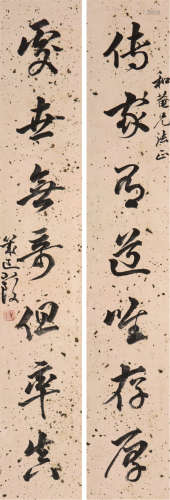 傳家有道唯存厚
和菴兄法正
處世無奇但率真